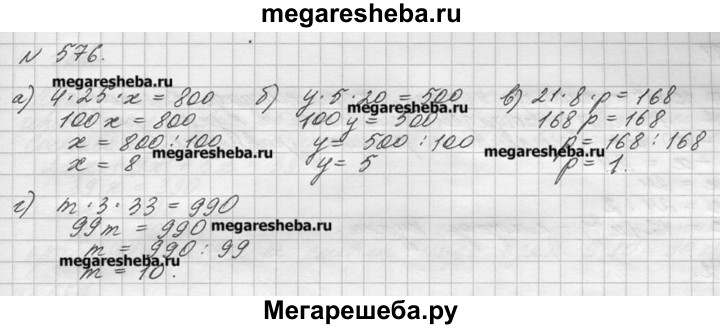 megaresheba.ru
N 576.
megaresheba.ru
а) 4·25·x = 800 б) y·5·20 = 500 в) 21·8·p = 168
megaresheba.ru
100x = 800 100y = 500 168p = 168
x = 800:100 y = 500:100 p = 168:168
megaresheba.ru megaresheba.ru
x = 8 y = 5 p = 1.
г) m·3·33 = 990
99m = 990 megaresheba.ru
m = 990:99
megaresheba.ru
m = 10.
Мегарешеба.ру